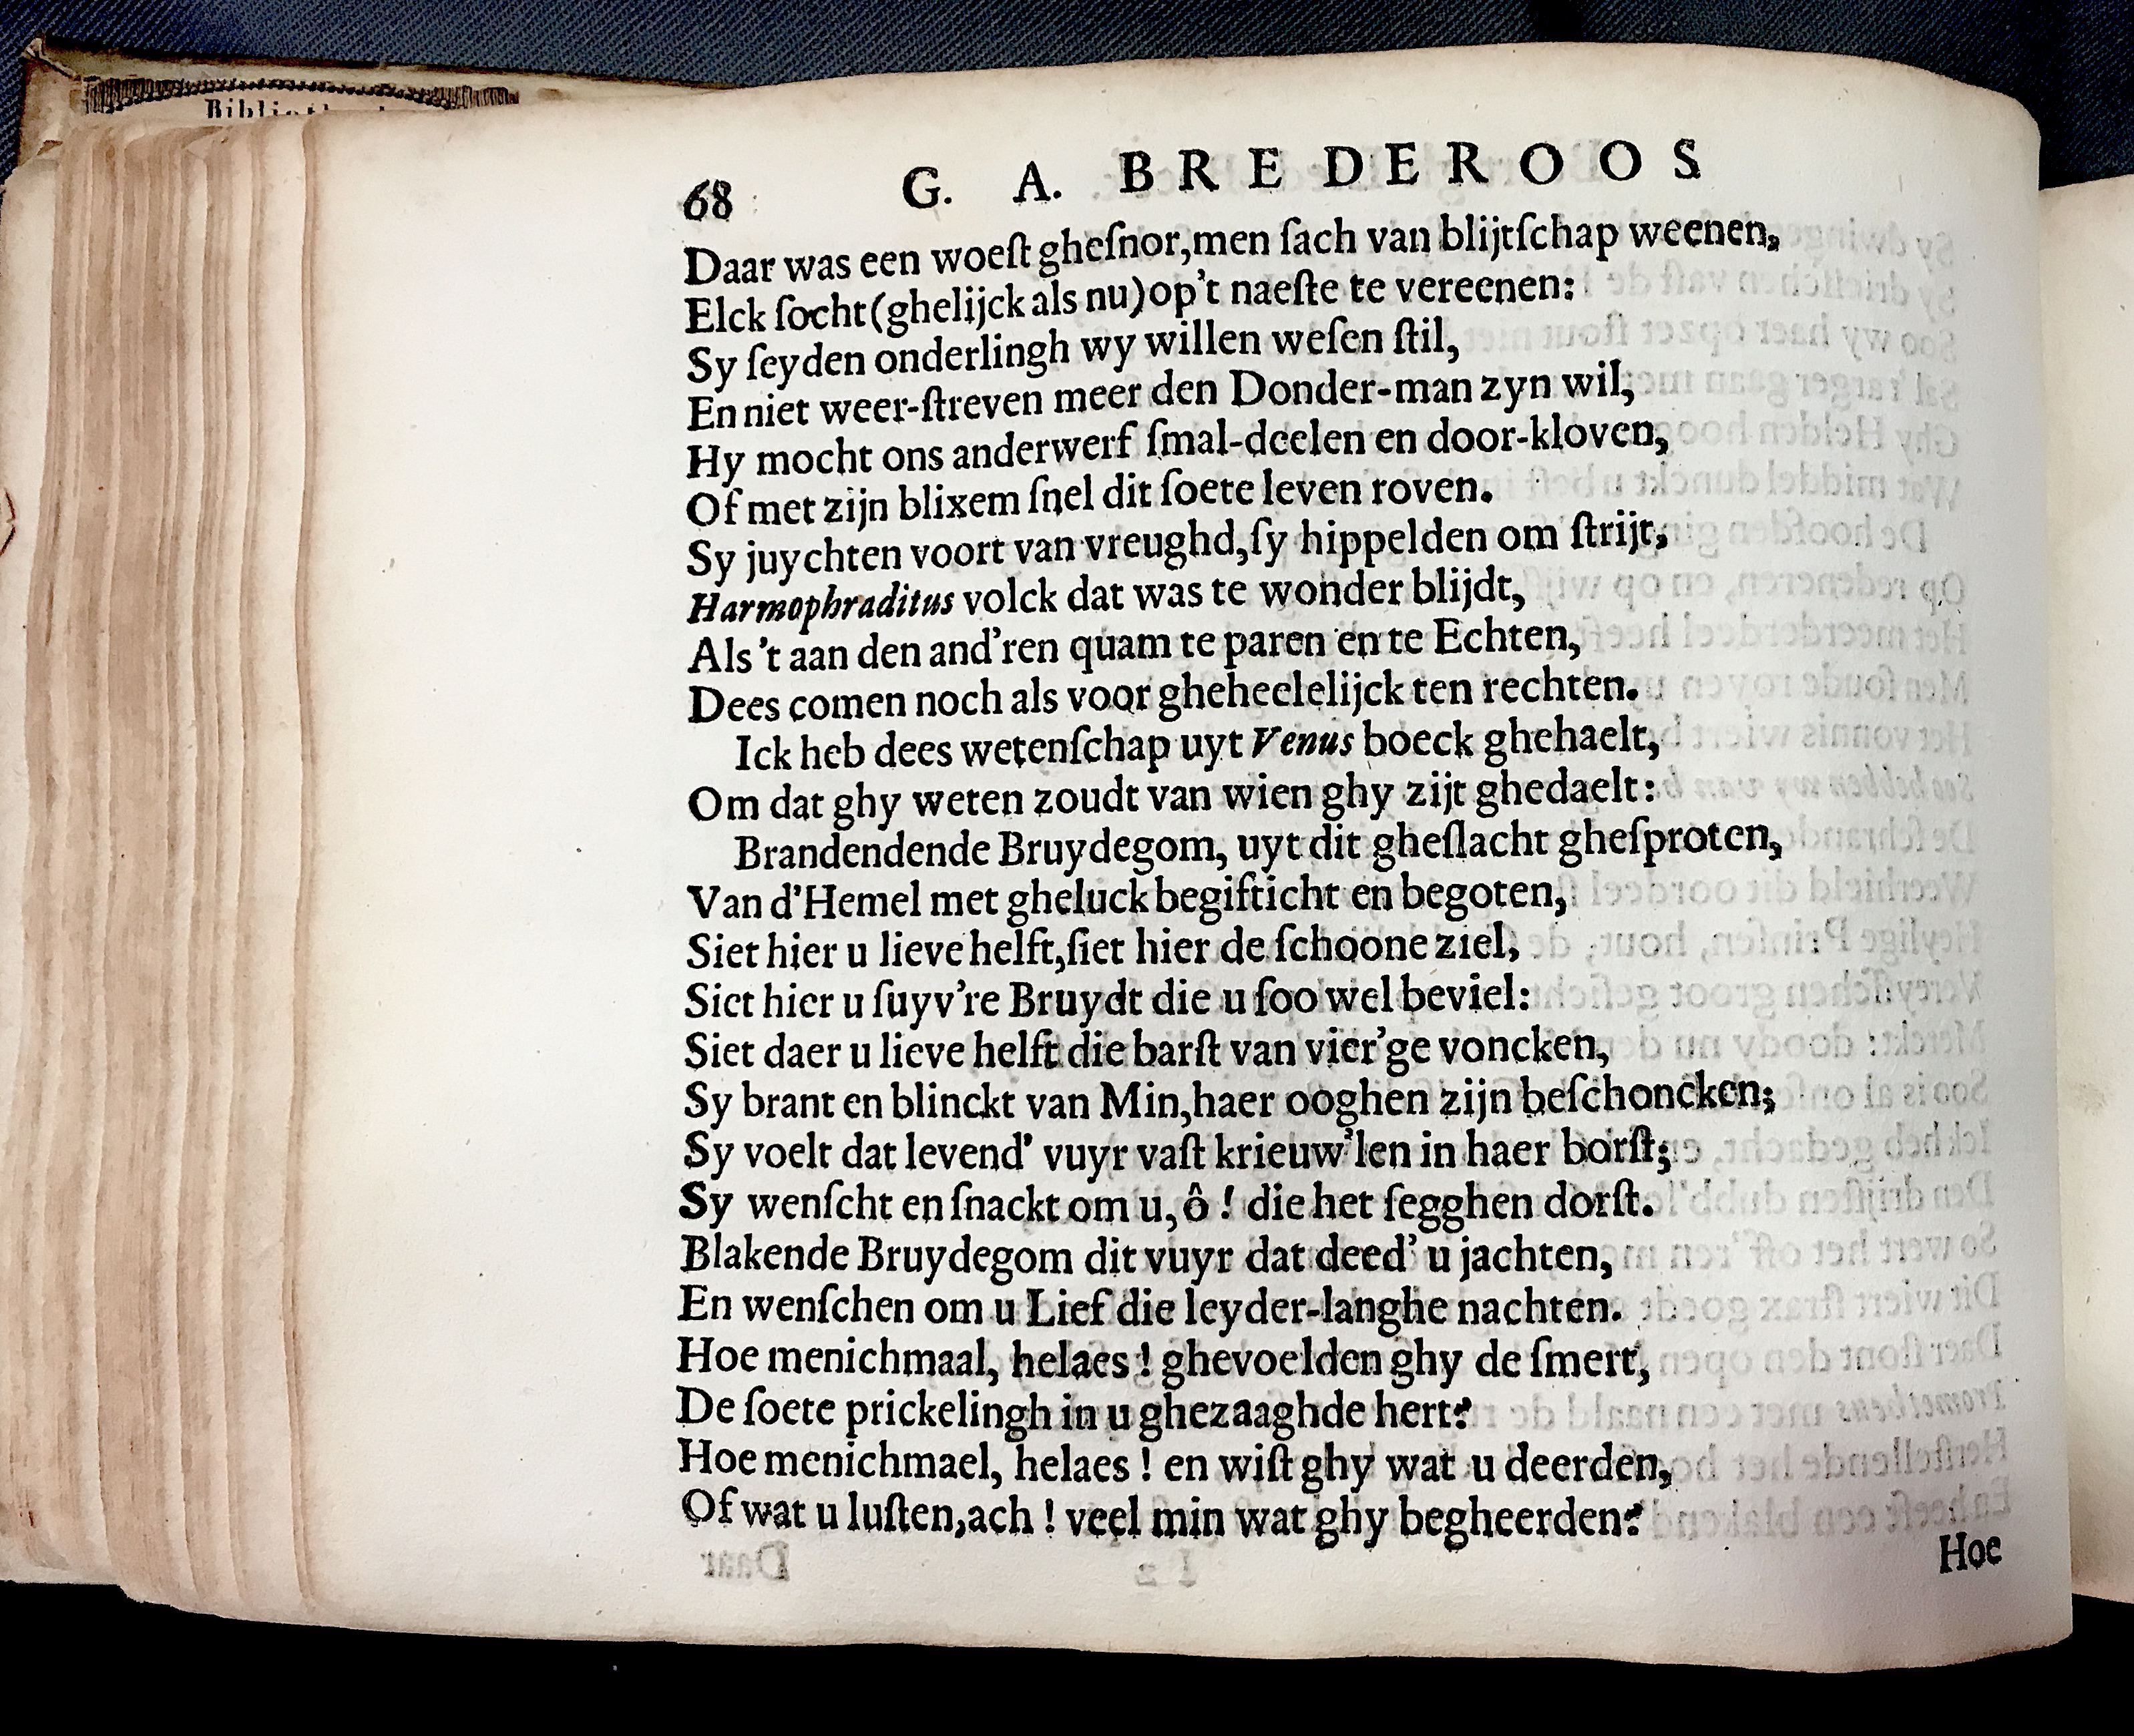 68 G. A. BREDEROOS
Daar was een woeſt gheſnor,men ſach van blijtſchap weenen,
Elck ſocht (ghelijck als nu) op't naeſte te vereenen:
Sy ſeyden onderlingh wy willen weſen ſtil,
En niet weer-ſtreven meer den Donder-man zyn wil,
Hy mocht ons anderwerf ſmal-deelen en door-kloven,
Of met zijn blixem ſnel dit ſoete leven roven.
Sy juychten voort van vreughd,ſy hippelden om ſtrijt,
Harmophraditus volck dat was te wonder blijdt,
Als 't aan den and'ren quam te paren en te Echten,
Dees comen noch als voor gheheelelijck ten rechten.
Ick heb dees wetenſchap uyt Venus boeck ghehaelt,
Om dat ghy weten zoudt van wien ghy zijt ghedaelt:
Brandendende Bruydegom, uyt dit gheſlacht gheſproten,
Van d'Hemel met gheluck begifticht en begoten,
Siet hier u lieve helft,ſiet hier de ſchoone ziel,
Siet hier u ſuyv're Bruydt die u ſoo wel beviel:
Siet daer u lieve helft die barſt van vier'ge voncken,
Sy brant en blinckt van Min,haer ooghen zijn beſchoncken;
Sy voelt dat levend' vuyr vaſt krieuw'len in haer borſt;
Sy wenſcht en ſnackt om u, ô ! die het ſegghen dorſt.
Blakende Bruydegom dit vuyr dat deed' u jachten,
En wenſchen om u Lief die leyder-langhe nachten.
Hoe menichmaal, helaes ! ghevoelden ghy de ſmert,
De ſoete prickelingh in u ghezaaghde hert?
Hoe menichmael, helaes ! en wiſt ghy wat u deerden,
Of wat u luſten,ach ! veel min wat ghy begheerden?
Hoe